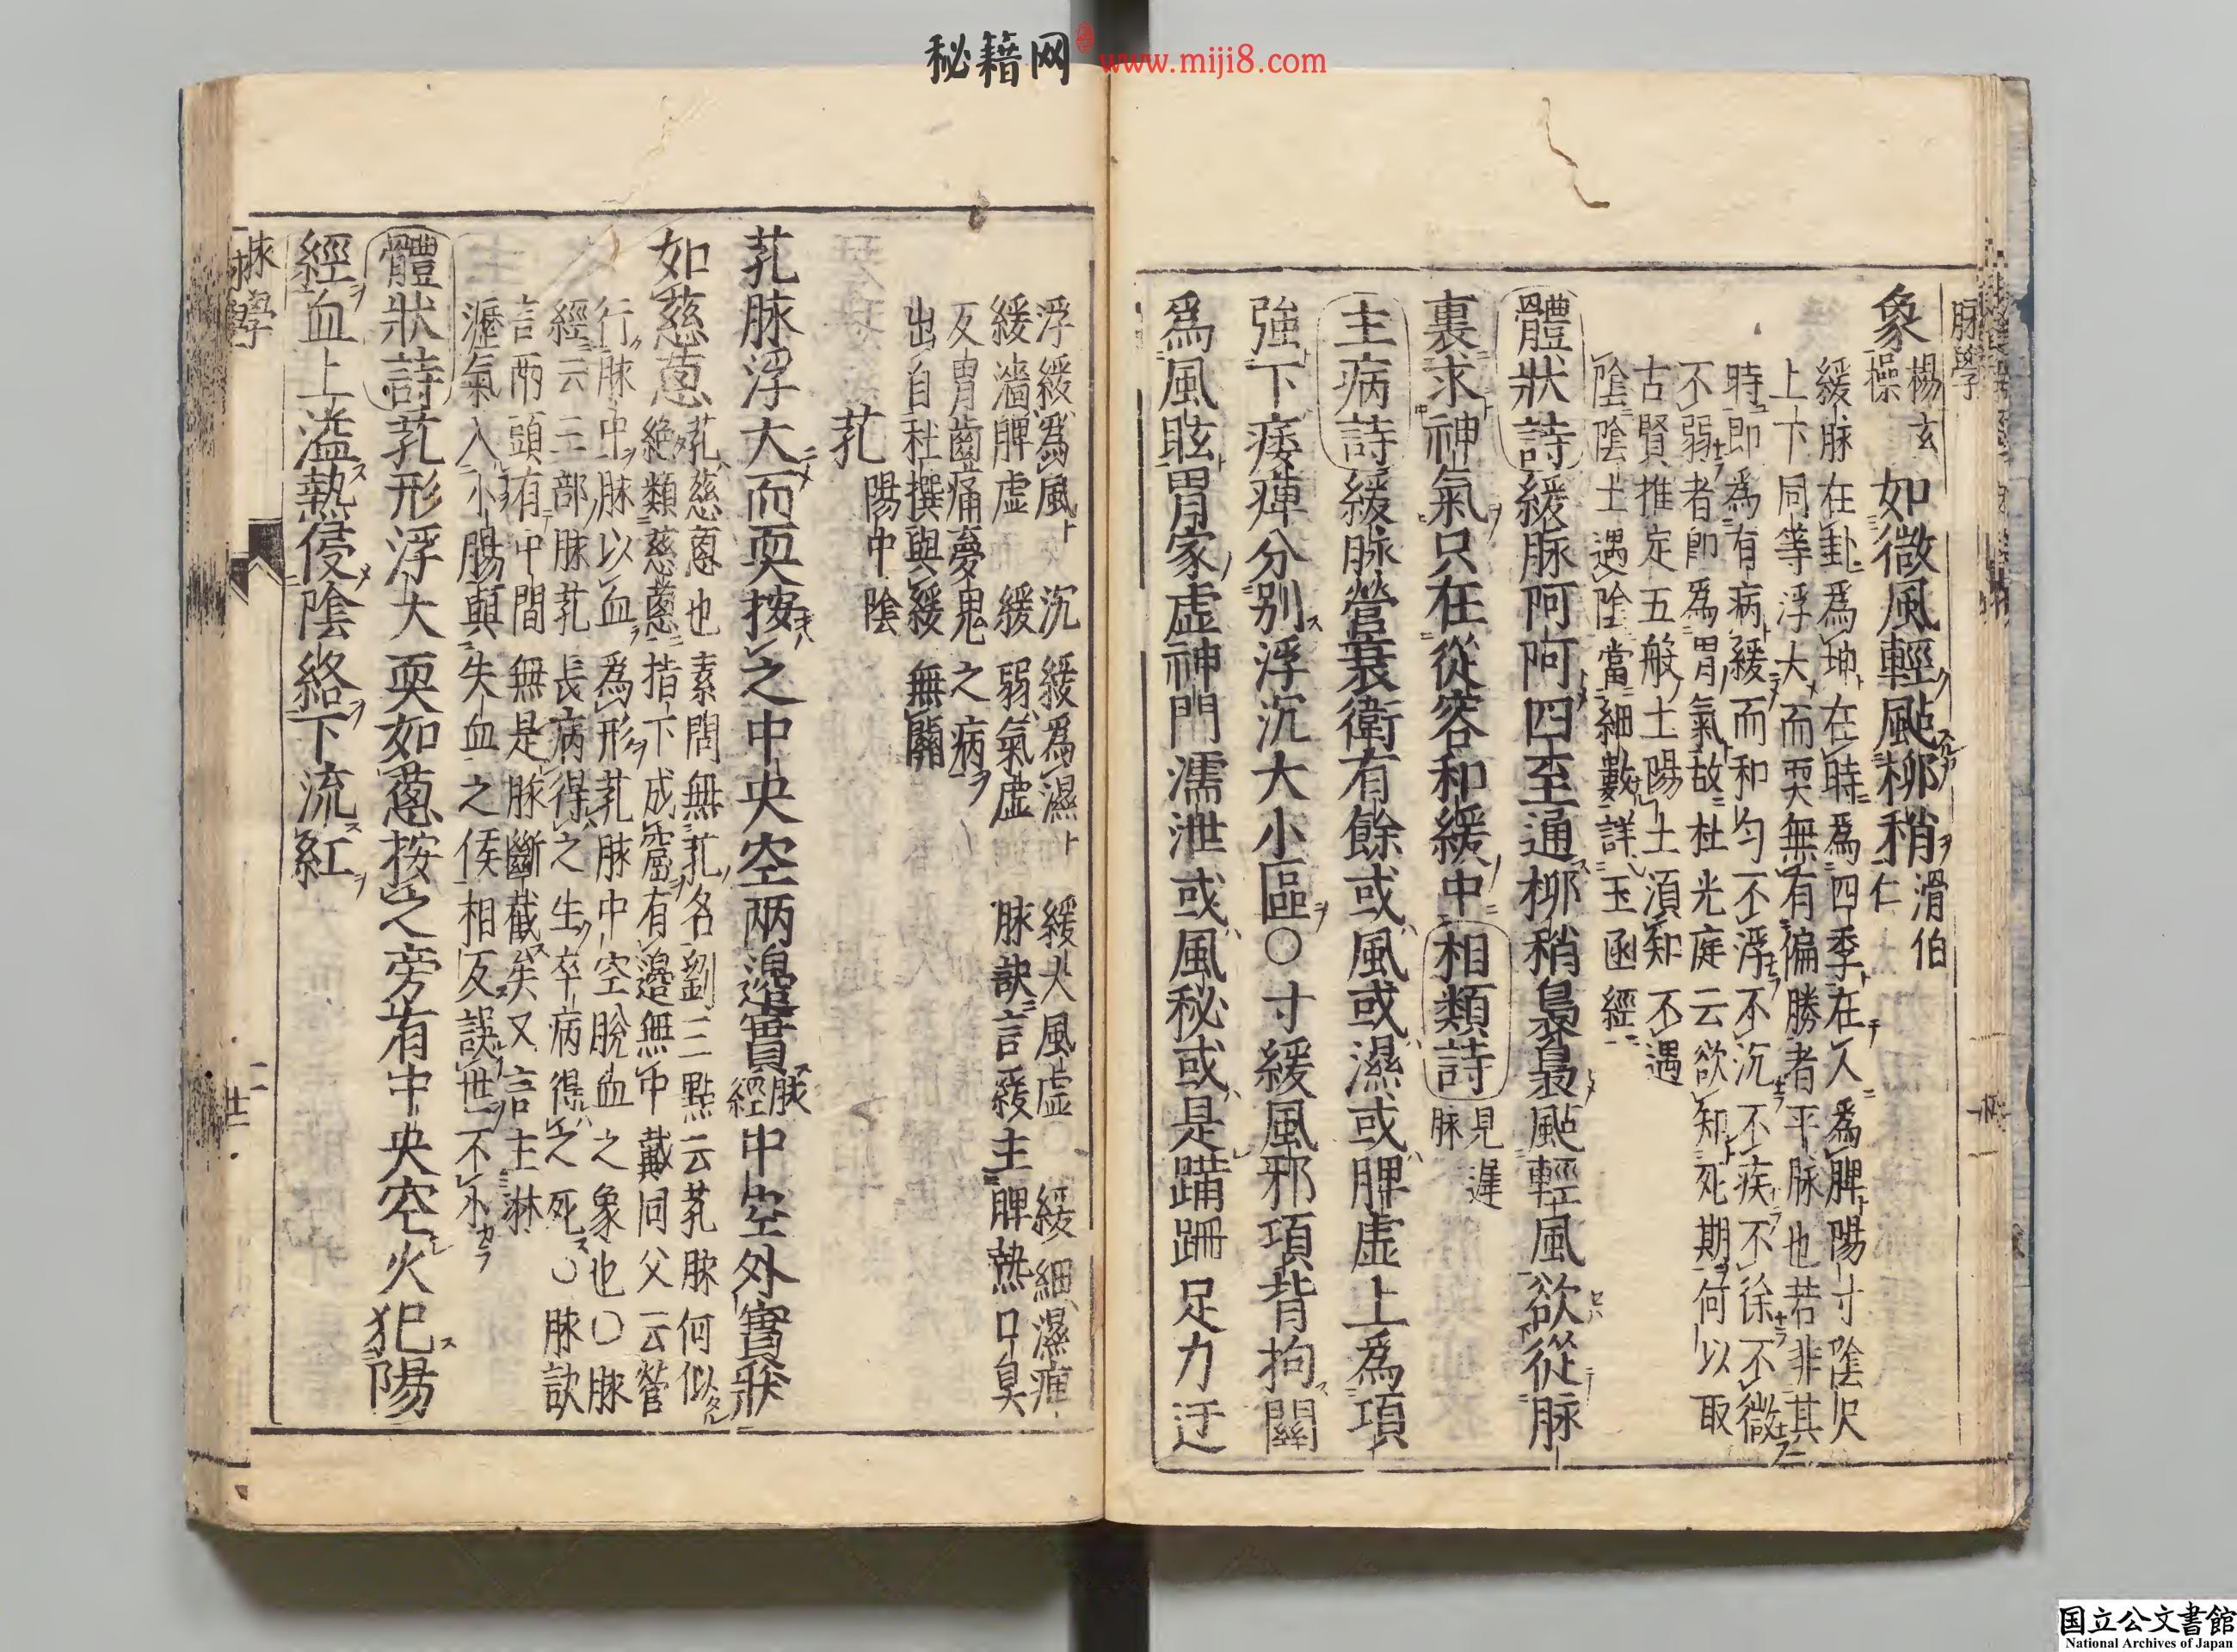 秘籍网 www.miji8.com
脉學
象楊玄操如微風輕颭柳稍滑伯仁
緩脉在卦爲坤在時爲四季在人爲脾陽寸陰尺
上下同等浮大而耎無有偏勝者平脉也若非其
時即爲有病緩而和匀不浮不沉不疾不徐不微
不弱者即爲胃氣故杜光庭云欲知死期何以取
古賢推定五般土陽土須知不遇
陰陰土遇陰當細數詳玉函經
體狀詩緩脉阿阿四至通柳稍裊裊颭輕風欲從脉
裏求神氣只在從容和緩中相類詩見遲脉
主病詩緩脉營衰衛有餘或風或濕或脾虚上爲項
強下痿痺分別浮沉大小區○寸緩風邪項背拘關
爲風眩胃家虚神門濡泄或風秘或是蹣跚足力迂
浮緩爲風沉緩爲濕緩大風虚緩細濕痺
緩濇脾虚緩弱氣虚脉訣言緩主脾熱口臭
反胃齒痛夢鬼之病
出自杜撰與緩無關
芤陽中陰
芤脉浮大而耎按之中央空两邉實脉經中空外實狀
如慈葱芤慈葱也素問無芤名劉三點云芤脉何似
絶類慈葱指下成窟有邉無中戴同父云營
行脉中脉以血爲形芤脉中空脫血之象也○脉
經云三部脉芤長病得之生卒病得之死○脉訣
言兩頭有中間無是脉斷截矣又言主淋
瀝氣入小腸與失血之候相反誤世不小
體狀詩芤形浮大耎如葱按之旁有中央空火犯陽
經血上溢熱侵陰絡下流紅
脉學
廿一
国立公文書館
National Archives of Japan